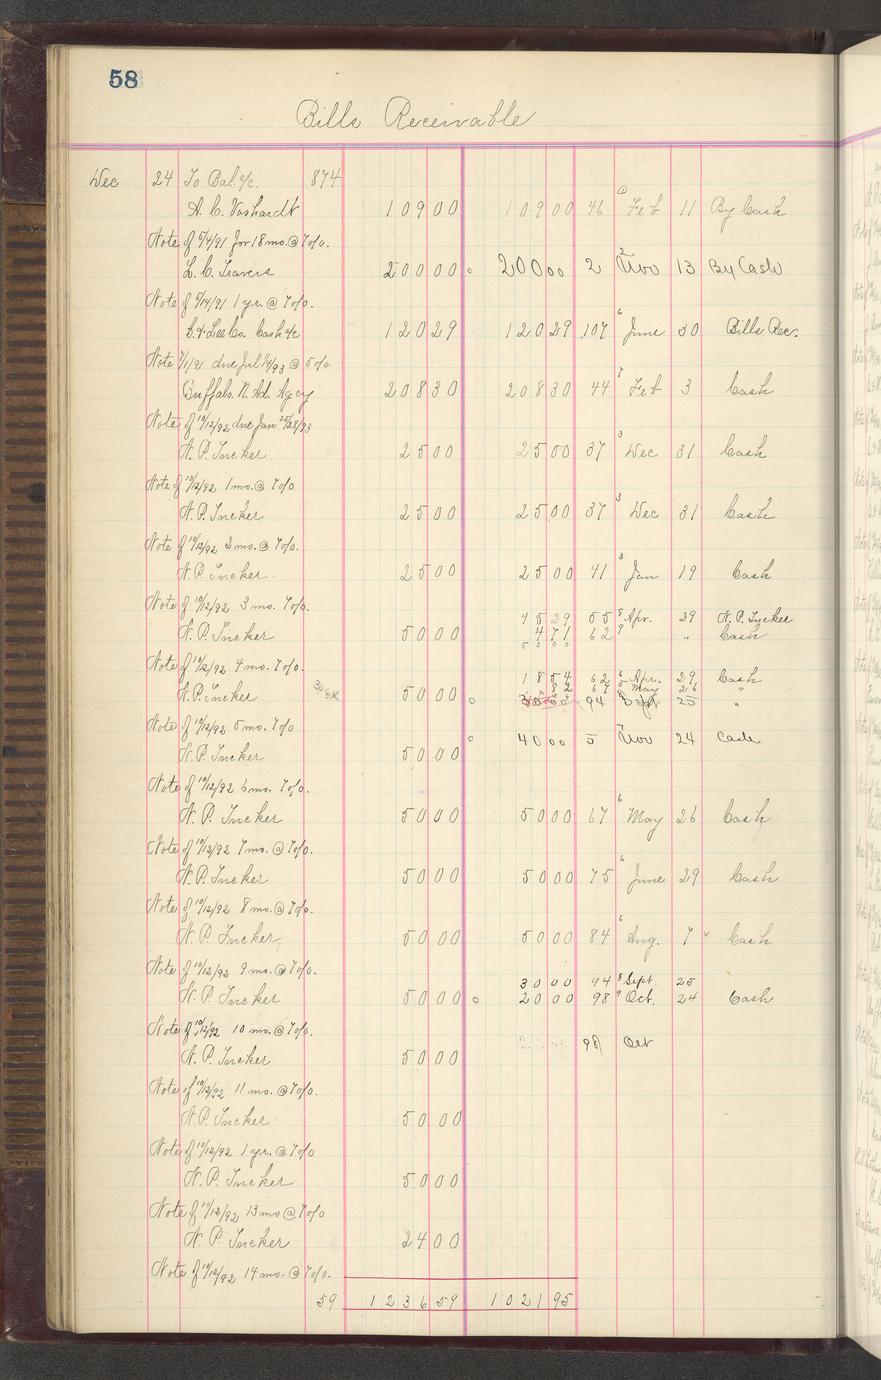 58
Bills Receivable
Dec 24 To Bal. a/c. 874
A. C. Voshardt 109 00 109 00 46 6 Feb 11 By Cash
Note of 5/4/91 for 18 mo. @ 7 o/o.
L. C. Travers 200 00 200 00 2 Nov 13 By Cash
Note of 5/14/91 1 yr. @ 7 o/o.
Lee Co. Cash a/c 120 29 120 29 107 6 June 30 Bills Rec.
Note 7/1/91 due Jul 14/93 @ 5 o/o
Buffalo N. Ad. Agcy 208 30 208 30 44 7 Feb 3 Cash
Note of 10/12/92 due Jan 28/93
N. P. Tucker 25 00 25 00 37 3 Dec 31 Cash
Note of 10/12/92 1 mo. @ 7 o/o
N. P. Tucker 25 00 25 00 37 3 Dec 31 Cash
Note of 10/12/92 2 mo. @ 7 o/o.
N. P. Tucker 25 00 25 00 41 3 Jan 19 Cash
Note of 10/12/92 3 mo. 7 o/o.
45 29 55 8 Apr. 29 N. P. Tucker
N. P. Tucker 50 00 4 71 62 9 " Cash
50 00
Note of 10/12/92 4 mo. 7 o/o.
18 54 62 6 Apr. 29 Cash
82 67 5 May 26 "
N. P. Tucker 50 00 30 00 94 8 Sept 25 "
Note of 10/12/92 5 mo. 7 o/o
40 00 5 7 Nov 24 Cash
N. P. Tucker 50 00
Note of 10/12/92 6 mo. 7 o/o.
N. P. Tucker 50 00 50 00 67 6 May 26 Cash
Note of 10/12/92 7 mo. @ 7 o/o.
N. P. Tucker 50 00 50 00 75 6 June 29 Cash
Note of 10/12/92 8 mo. @ 7 o/o.
N. P. Tucker 50 00 50 00 84 6 Aug. 7 Cash
Note of 10/12/92 9 mo. @ 7 o/o.
30 00 94 8 Sept. 25
N. P. Tucker 50 00 20 00 98 9 Oct. 24 Cash
Note of 10/12/92 10 mo. @ 7 o/o.
98 Oct
N. P. Tucker 50 00
Note of 10/12/92 11 mo. @ 7 o/o.
N. P. Tucker 50 00
Note of 10/12/92 1 yr. @ 7 o/o
N. P. Tucker 50 00
Note of 10/12/92 13 mo @ 7 o/o
N. P. Tucker 24 00
Note of 10/12/92 14 mo. @ 7 o/o.
59 1236 59 1021 95